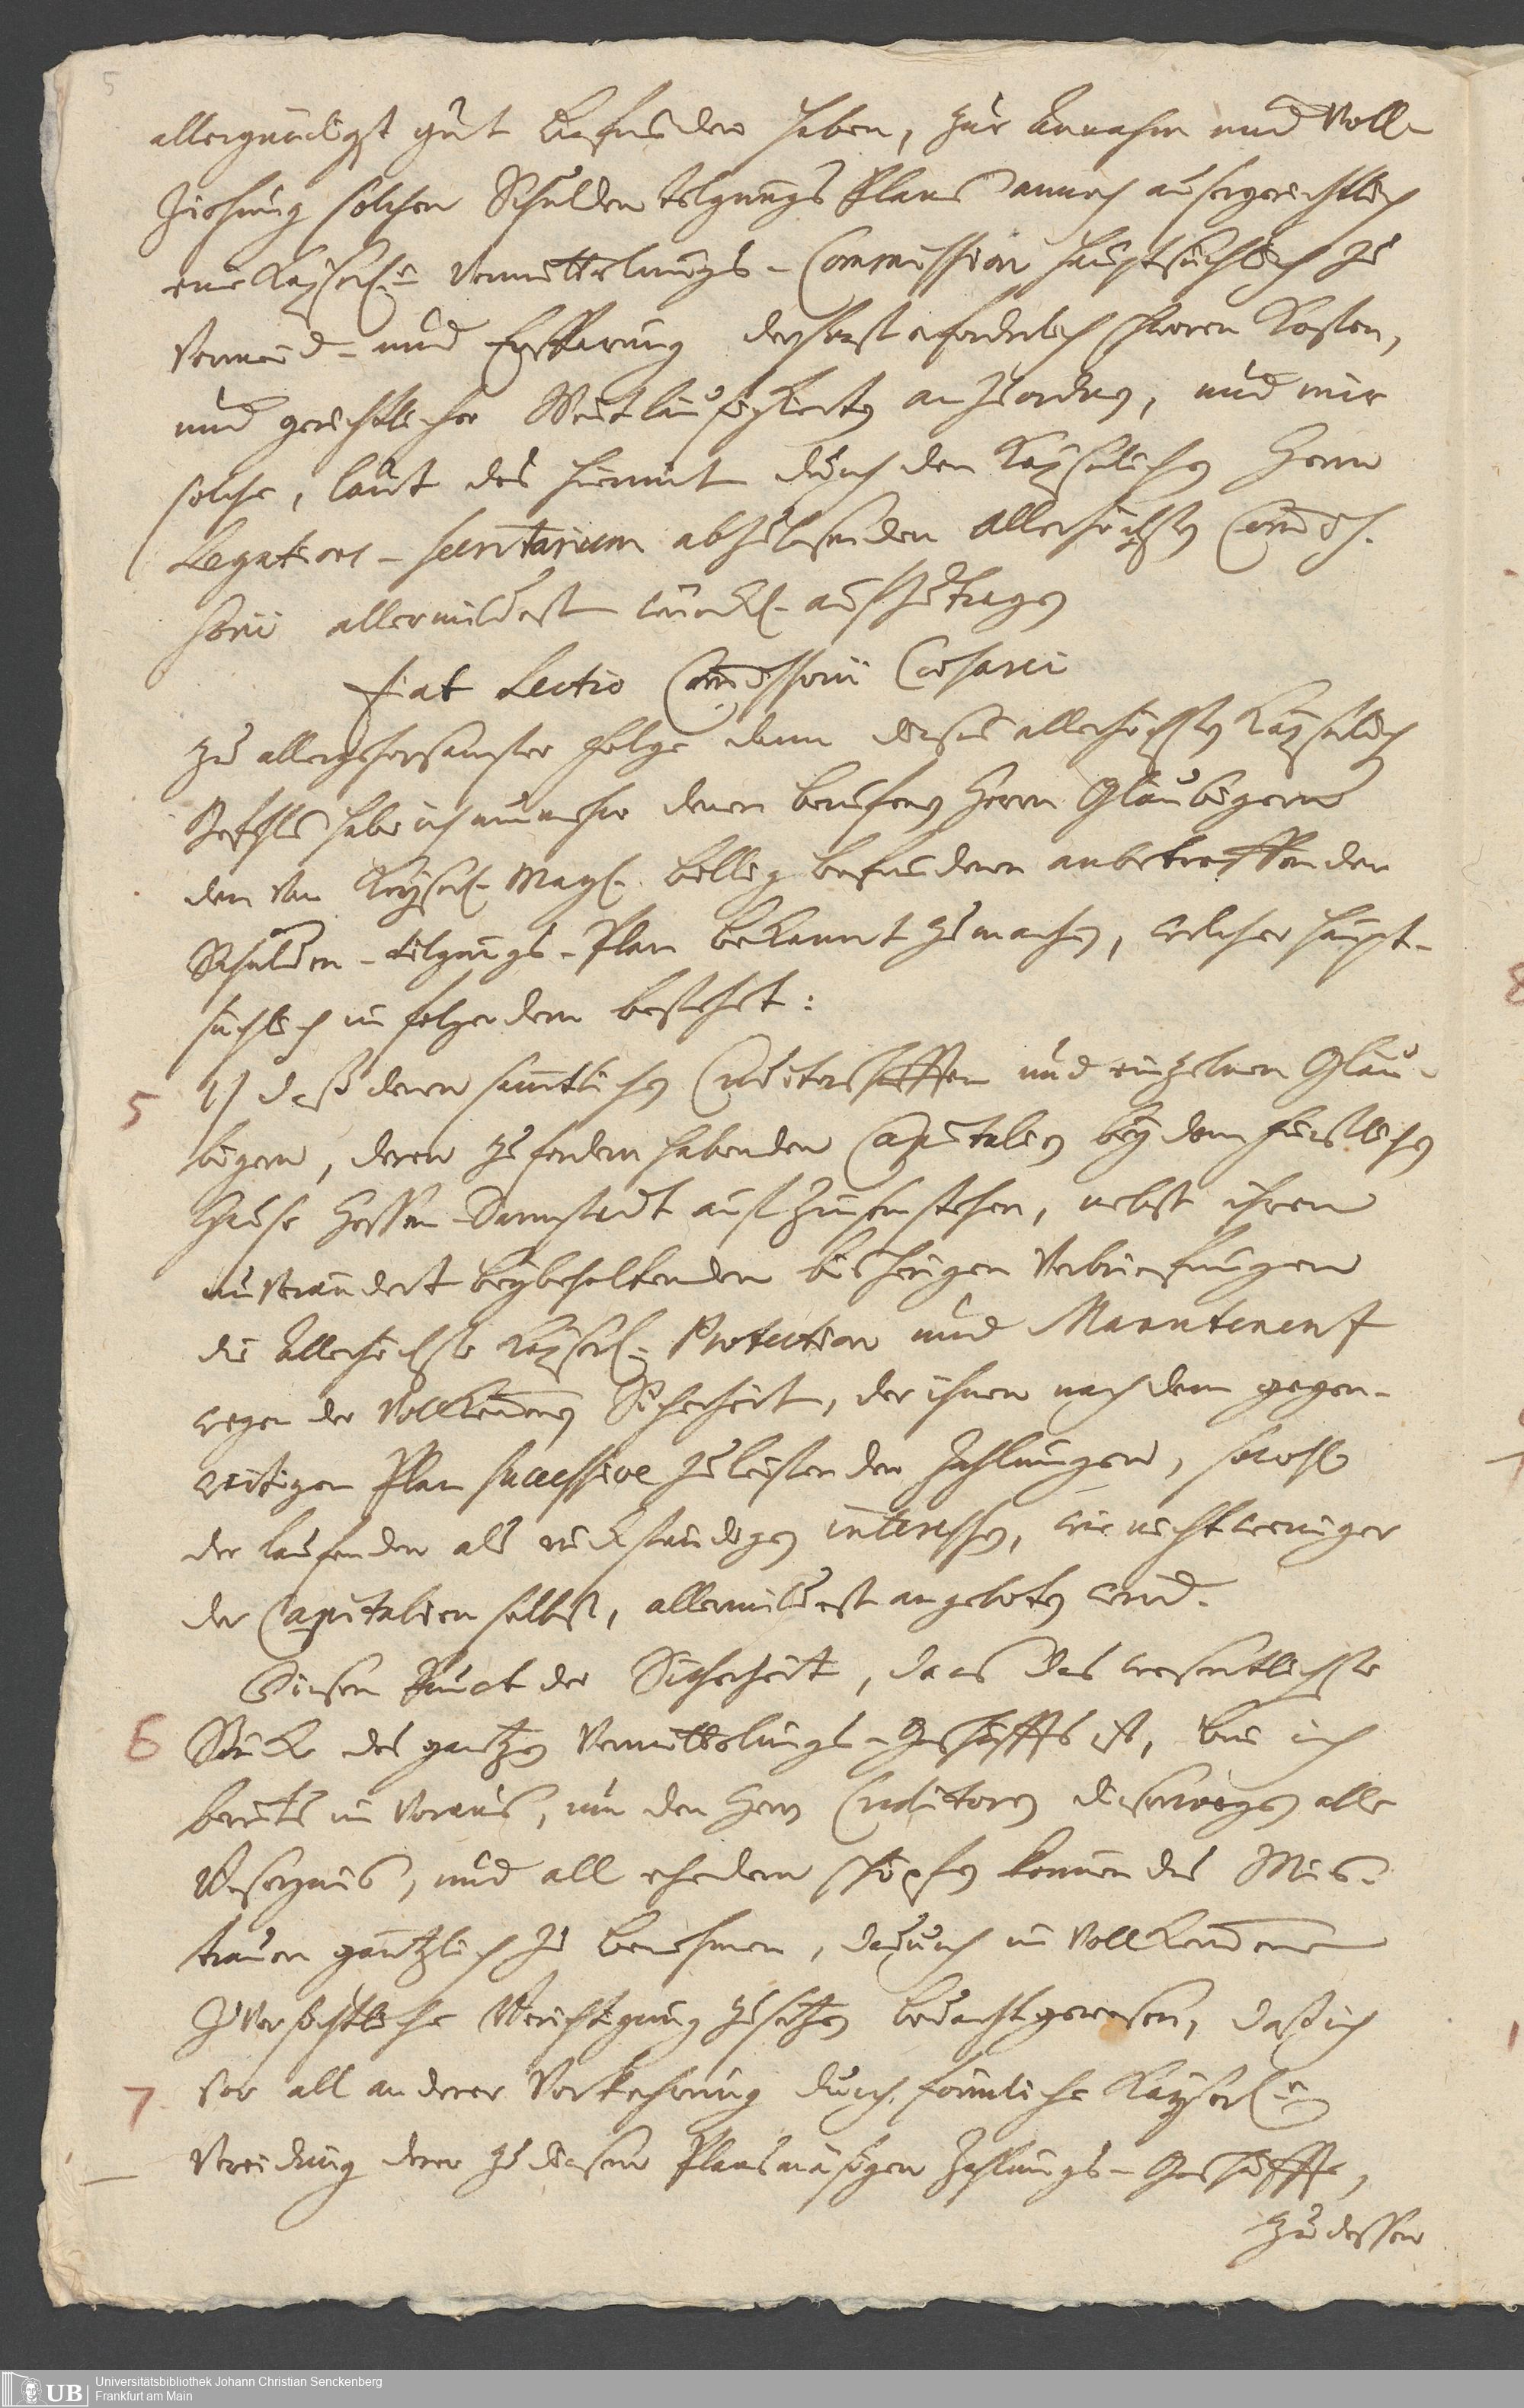 5
allergnädigst gut befunden haben, zur Annahm und Voll-
ziehung solchen Schulden tilgungs Plans annoch außergerichtlich
eine Kayserl.e Vermittelungs-Commission hauptsächlich zu
Vermeid- und Ersparung der sonst erforderlich schweren Kosten,
und gerichtlicher Weitläufigkeiten anzuordnen, und mir
solche, laut des hiermit durch den Kayserlichen Herrn
Legations-secretarium abzulesenden allerhöchsten Com̅is-
sorii allermildest würckl. aufzutragen
Fiat Lectio Com̅issorii Cæsarei
Zu allergehorsamster Folge dann dieses allerhöchsten Kayserlich
Befehls habe ich nunmehro denen berufenen Herrn Gläubigern
den von Kayserl. Mayt. billig befundenen anbetreffenden
Schulden-tilgungs-Plan bekannt zu machen, welcher haupt-
sächlich in folgendem bestehet:
5 1) daß denen sämtlichen Creditorschafften und einzelnen Gläu-
bigern, deren zu fordern habenden Capitalien bey dem fürstlichen
Hause Hessen-Darmstadt auf Zinsen stehen, nebst ihren
unverändert beybehaltenden bisherigen Verbriefungen
die Allerhöchste Kayserl. Protection und Manutenenz
wegen der vollkom̅enen Sicherheit, der ihnen nach dem gegen-
wärtigen Plan successive zu leistenden Zahlungen, sowohl
der laufenden als rückständigen interessen, wie nicht weniger
der Capitalien selbst, allermildest angeboten wird.
Diesen Punct der Sicherheit, da es das wesentlichste
6 Stück des gantzen Vermittelungs-Geschäffts ist, bin ich
bereits im Voraus, um den Herrn Creditoren dieserwegen alle
Besorgnis, und all ehedem schöpfen können des Mis-
trauen gäntzlich zu benehmen, dadurch in vollkom̅ene
Zuversichtliche Berichtigung zu setzen bedacht gewesen, daß ich
7 vor all anderer Vorkehrung durch förmliche Kayserl.e
Vereidung derer zu diesem Plansmäßigen Zahlungs-Geschäffte,
zu dessen
UB Universitätsbibliothek Johann Christian Senckenberg
Frankfurt am Main